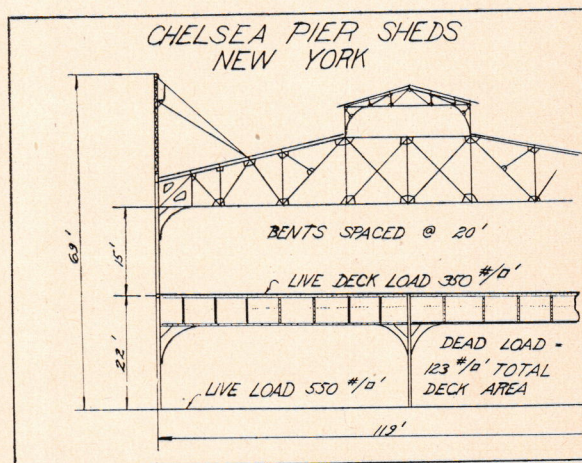 CHELSEA PIER SHEDS
NEW YORK
69'
BENTS SPACED @ 20'
15'
LIVE DECK LOAD 350 #/□'
22'
DEAD LOAD -
123 #/□' TOTAL
DECK AREA
LIVE LOAD 550 #/□'
119'